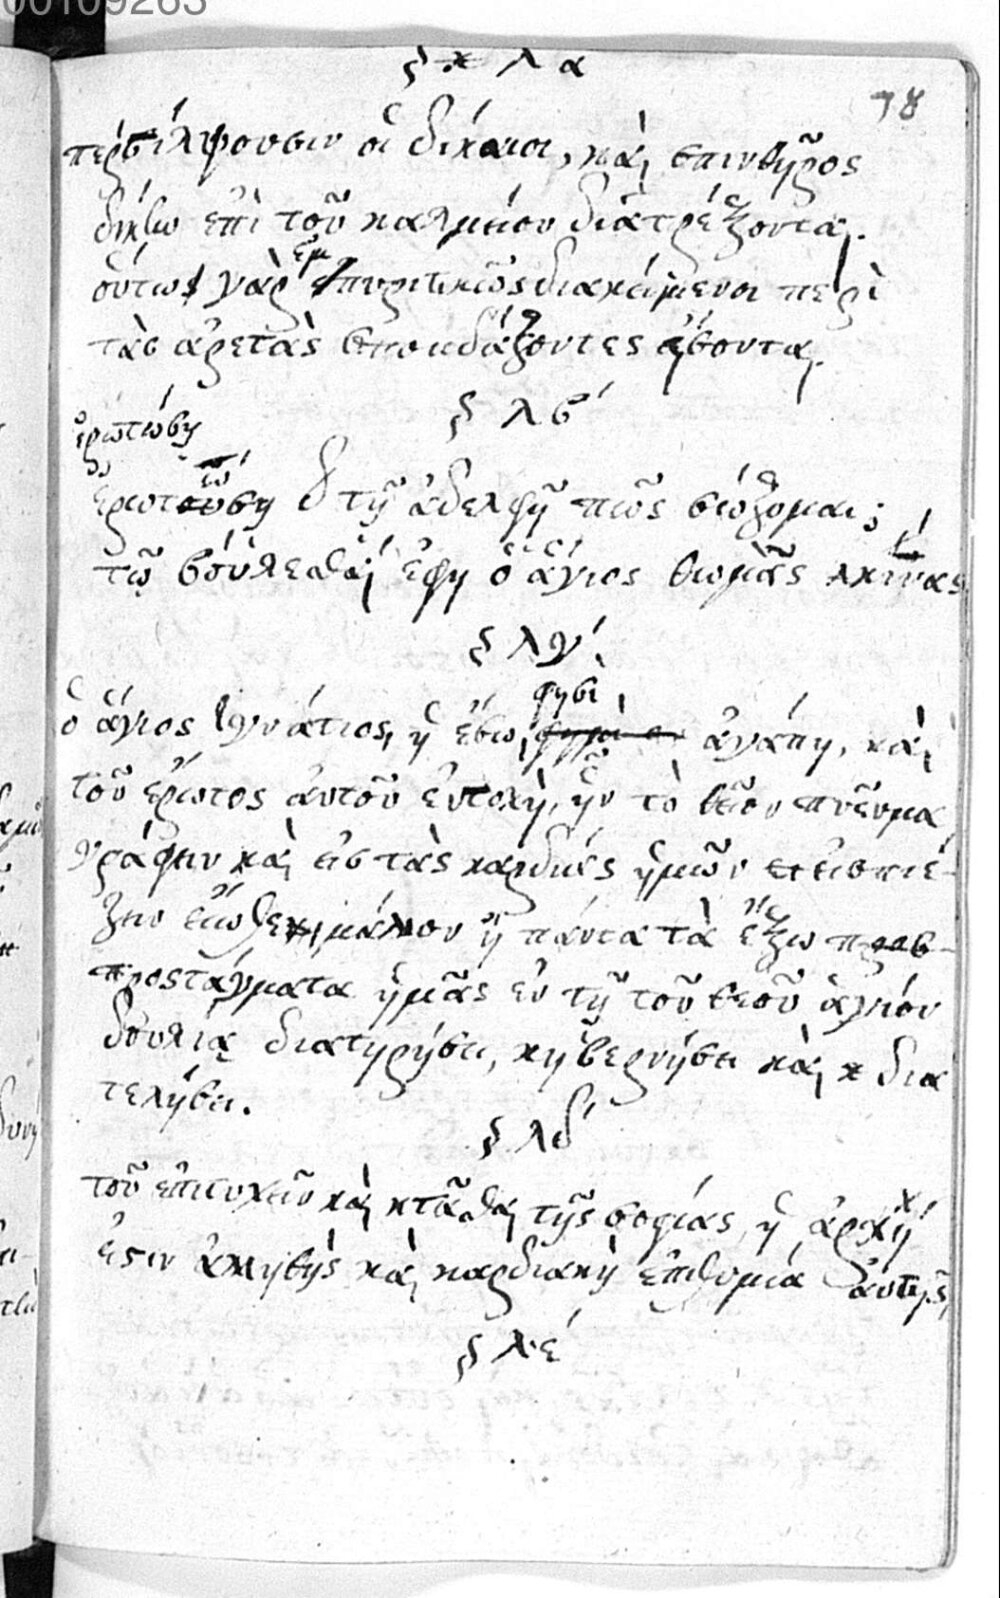 00109263
ς λα
78
περιλήψουσιν οἱ δίκαιοι, καὶ σπινθῆρος
δίκην ἐπὶ τοῦ καλμείου διατρέξονται.
οὕτως γὰρ ἐμπυριτικῶς διακείμενοι περὶ
τὰς ἀρετὰς σπουδάζοντες ἔσονται.
ς λβ´
ἐρωτώση
ἐρωτώση δ τῇ ἀδελφῇ πῶς σώζομαι;
τῷ βούλεσθαι ἔφη ὁ ἅγιος θωμᾶς
ς λγ´
φησὶ
ὁ ἅγιος Ἰγνάτιος, ἡ ἔσω, ἀγάπη, καὶ
τοῦ ἔρωτος αὐτοῦ ἐντολὴ, ἣν τὸ θεῖον πνεῦμα
γράφειν καὶ εἰς τὰς καρδίας ἡμῶν εἰσπιέ-
ζειν εἴωθε, μᾶλλον ἢ πάντα τὰ ἔξω
προστάγματα ἡμᾶς ἐν τῇ τοῦ θεοῦ ἁγίου
δουλίᾳ διατηρήσει, κηβερνήσει καὶ δια
τελήσει.
ς λδ´
τοῦ ἐπιτυχεῖν καὶ κτᾶσθαι τῆς σοφίας, ἡ ἀρχή
ἐστιν ἀληθὴς καὶ καρδιακὴ ἐπιθυμία αὐτῆς,
ς λε´